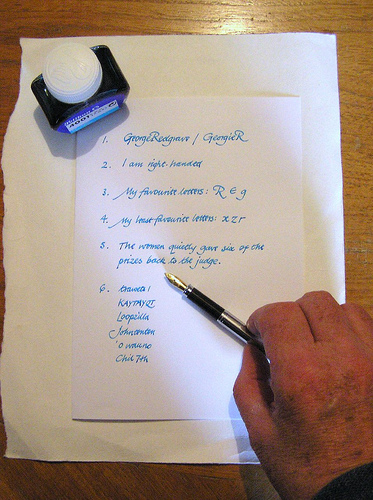 1. GeorgeRedgrave / GeorgieR
2. I am right handed
3. My favourite letters: R e g
4. My least favourite letters: x z r
5. The women quietly gave six of the
prizes back to the judge.
6. troweta1
KAYTAYQT
Loopzilla
Johntenten
'o wauno
Chil 7th